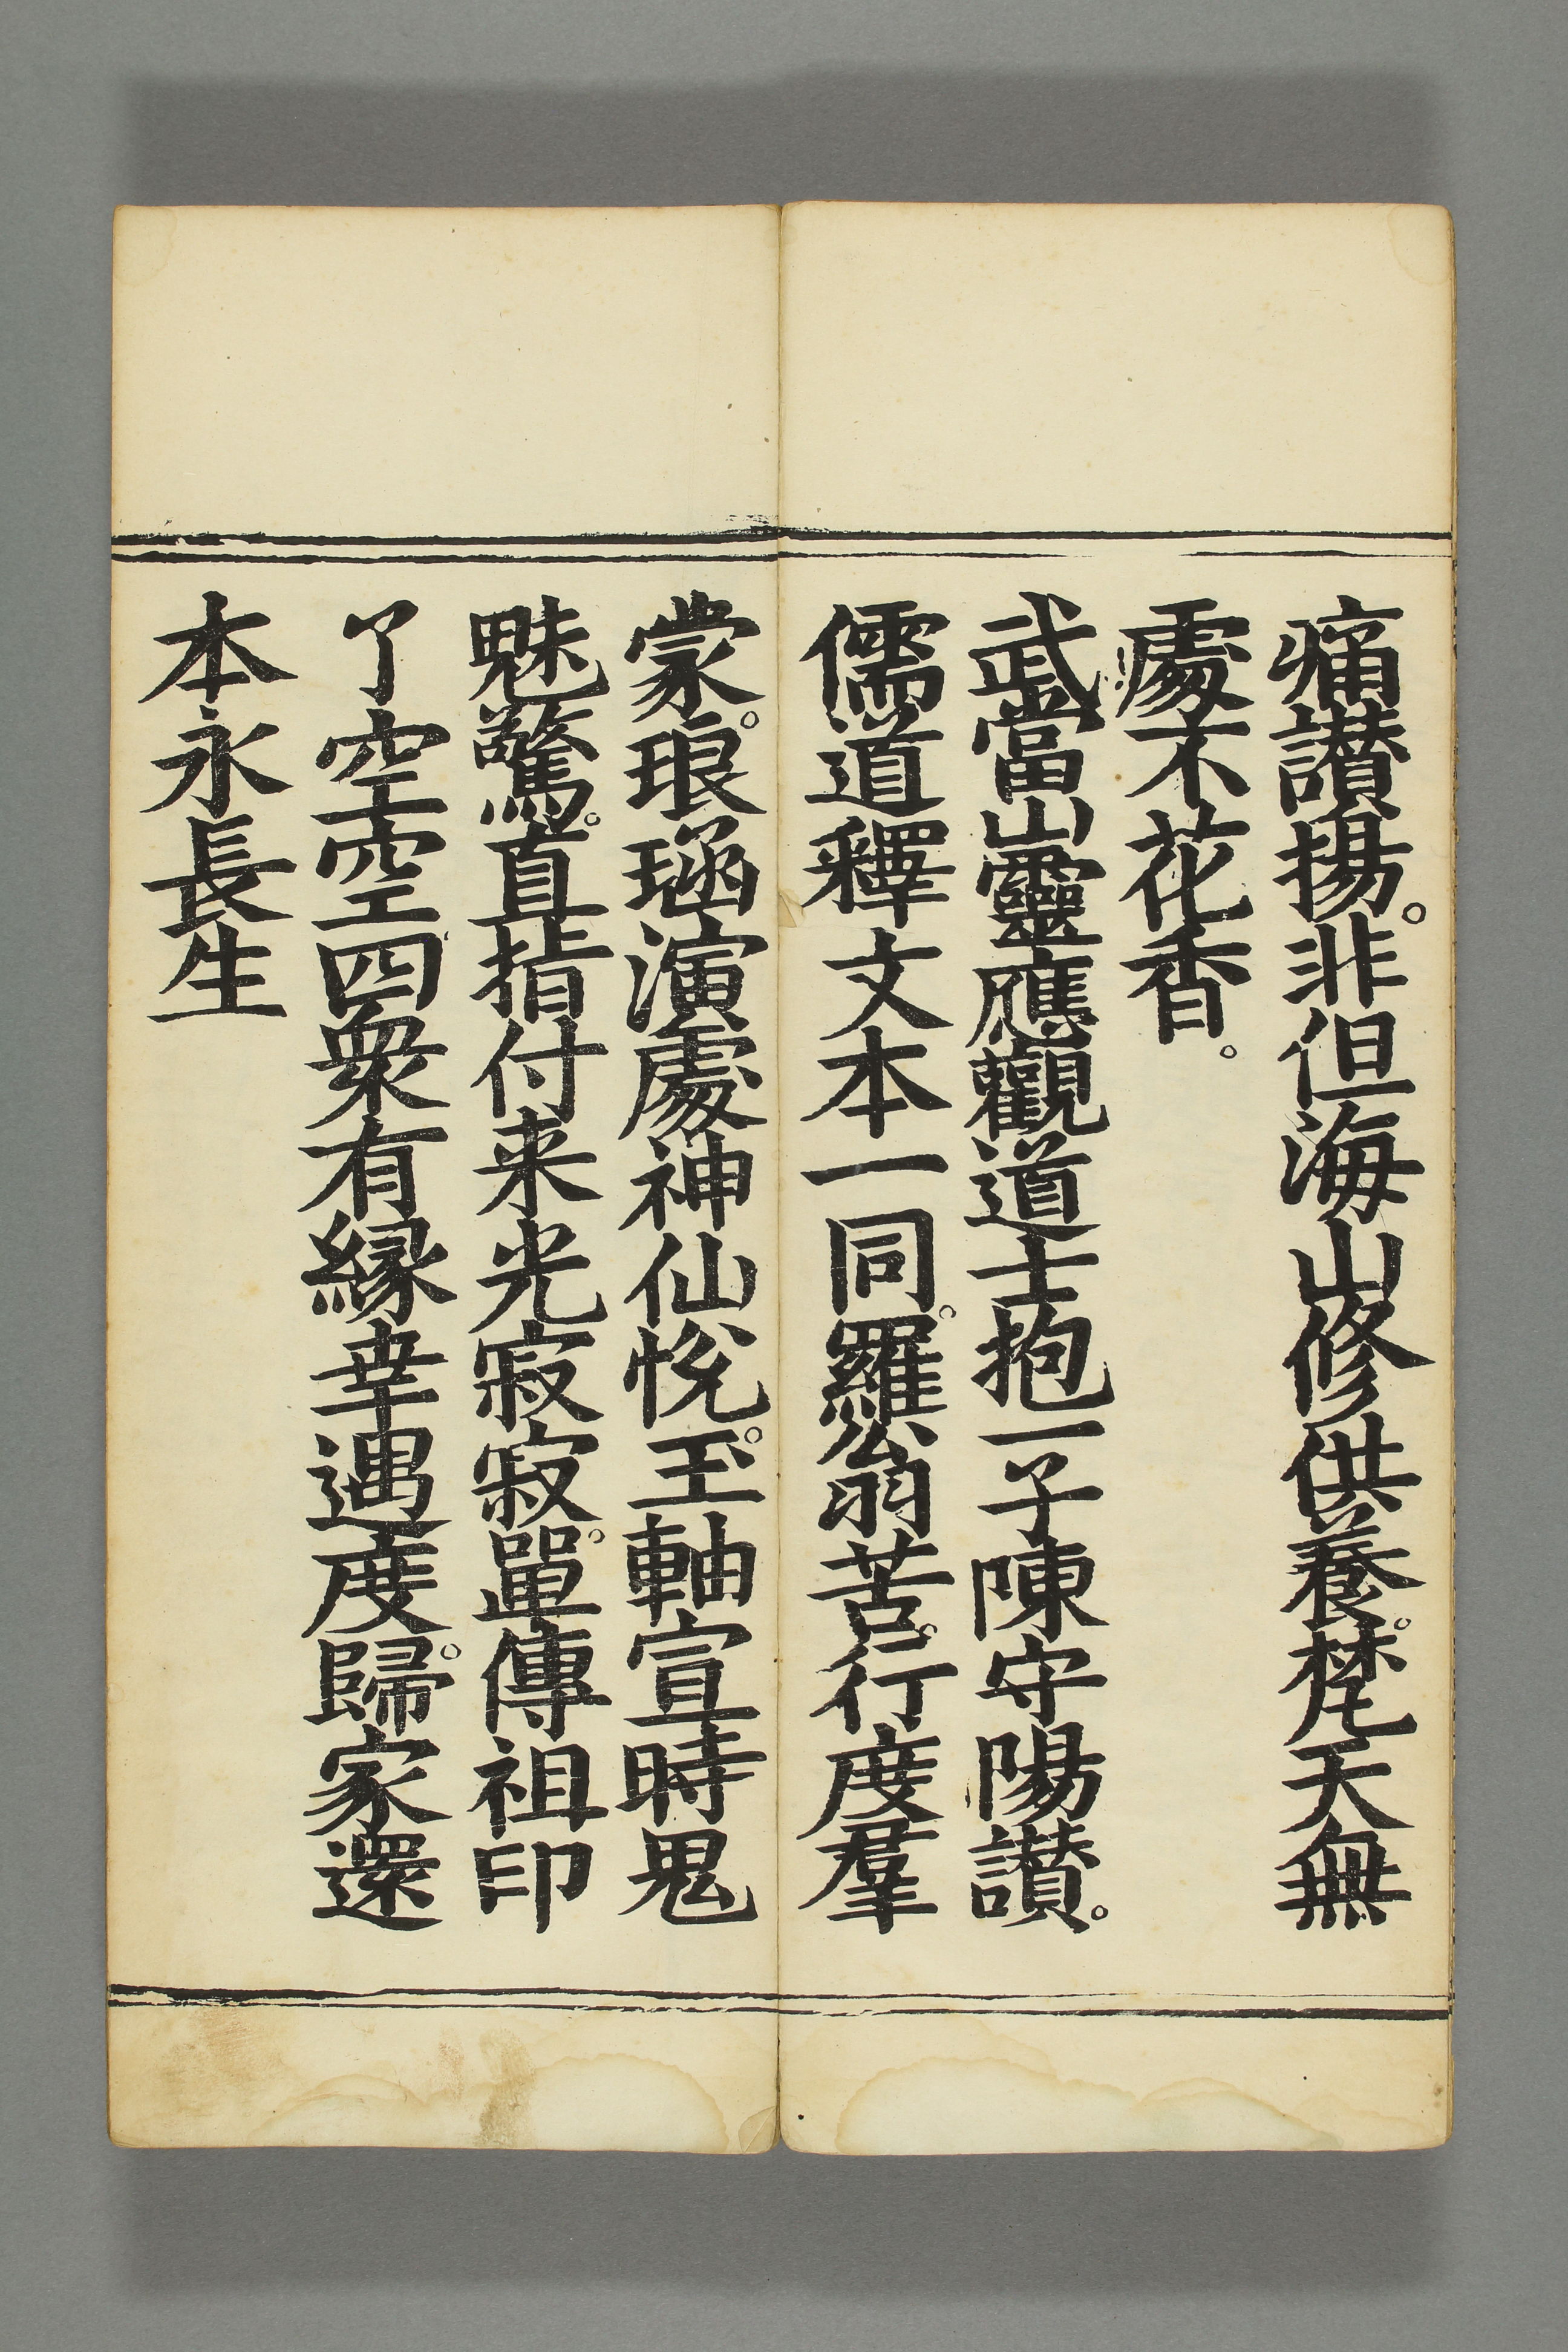 痛讃揚。非但海山修供養。梵天無
處不花香。
武當山靈應觀道士抱一子陳守陽讃。
儒道釋文本一同。羅公翁苦。行度羣
蒙。琅函演處神仙悅。玉軸宣時鬼
魅驚。直指付来光寂寂。單傳祖印
了空空四衆有縁幸遇度。歸家還
本永長生